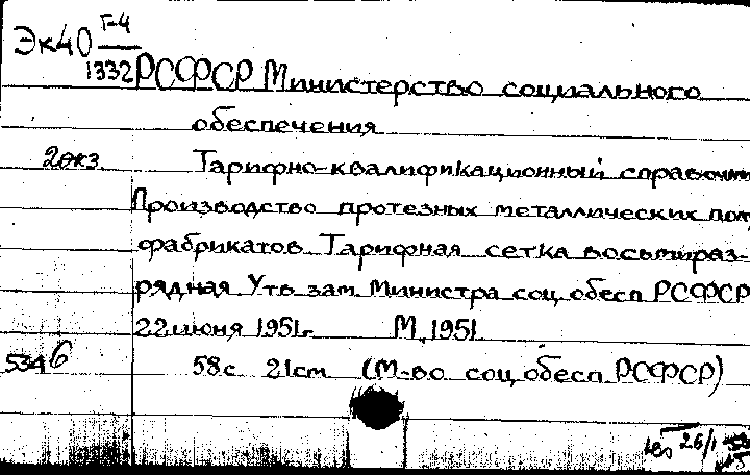 Эк40 Г-4
1332 РСФСР Министерство социального
обеспечения
2экз Тарифно-квалификационный справочник
Производство протезных металлических пол
фабрикатов Тарифная сетка восьмираз-
рядная Утв зам Министра соц обесп РСФСР
22 июня 1951г. М, 1951
5346 58с 21см (М-во соц обесп РСФСР)
26/